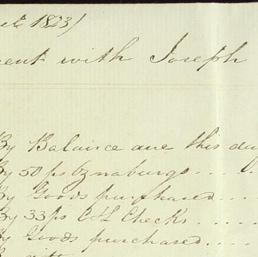 1833)
ent with Joseph
By Balance due this day
By 50 ps Oznaburgs....
By Goods purchased....
By 33 ps Checks.....
By Goods purchased....